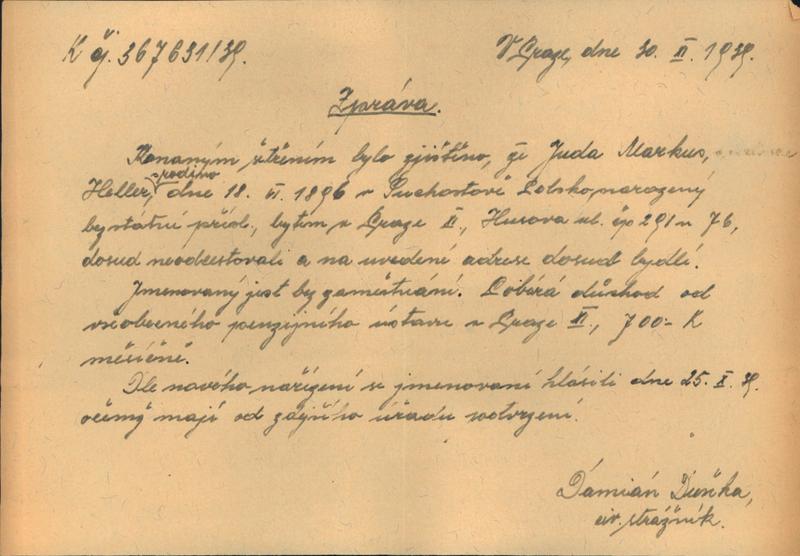 K čj. 367631/39.
V Praze, dne 30. XI. 1939.
Zpráva.
Konaným šetřením bylo zjištěno, že Juda Markus,
rodina
Heller, dne 18. VI. 1896 v Suchostavě Polsko, narozený
bez státní přísl., bytem v Praze II., Husova ul. čp 291 n 76,
dosud neodcestovali a na uvedené adrese dosud bydlí.
Jmenovaný jest bez zaměstnání. Pobírá důchod od
všeobecného penzijního ústavu v Praze XII., 700 - K
měsíčně.
Dle nového nařízení se jmenovaní hlásili dne 25. X. 39.
očemž mají od zdejšího úřadu potvrzení.
Damián Duška,
civ. strážník.